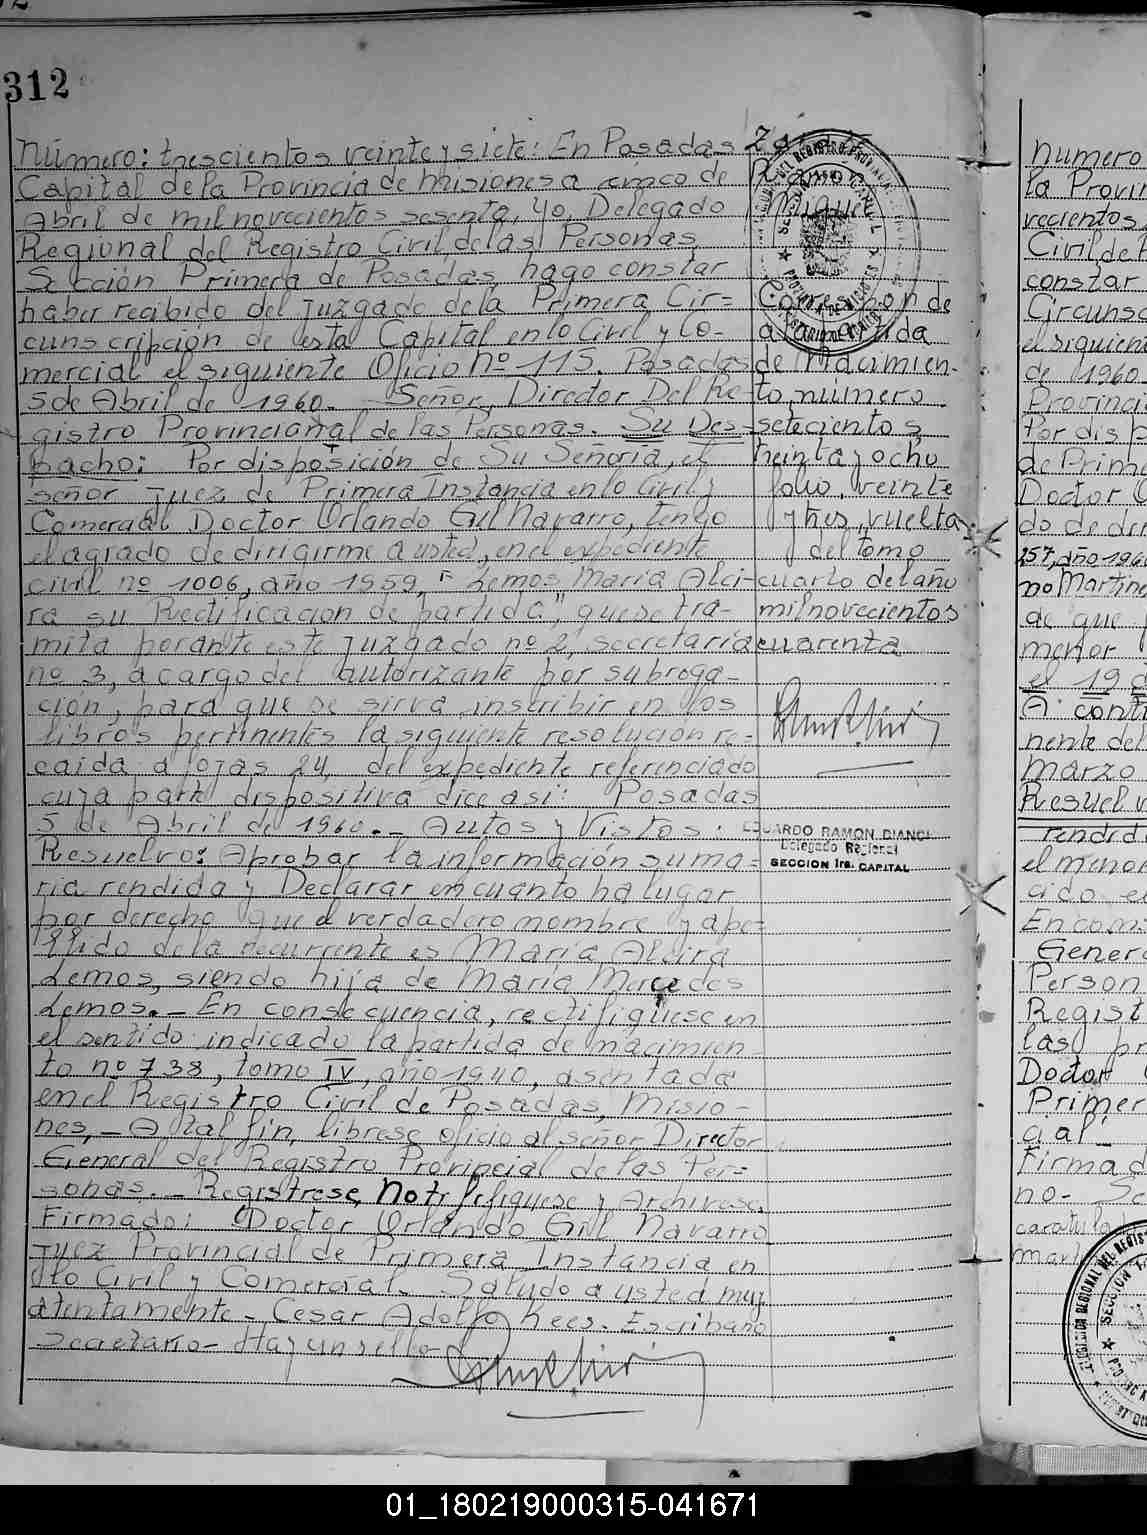 312
Número: trescientos veinte y siete: En Posadas
Capital de la Provincia de Misiones a cinco de
Abril de mil novecientos sesenta, yo, Delegado
Regional del Registro Civil de las Personas
Sección Primera de Posadas, hago constar
haber recibido del Juzgado de la Primera Cir=
cunscripción de esta Capital en lo Civil y Co-
mercial el siguiente Oficio nº 115. Posadas
5 de Abril de 1960.- Señor, Director Del Re-
gistro Provincianal de las Personas. Su Des-
pacho: Por disposición de Su Señoria, el
señor Juez de Primera Instancia en lo Civil y
Comercial Doctor Orlando Gill Navarro, tengo
el agrado de dirigirme a usted, en el expediente
civil nº 1006, año 1959, "Lemos Maria Alci-
ra su Rectificacion de partida", que se tra-
mita perante este Juzgado nº 2, secretaria
nº 3, a cargo del autorizante por subroga-
ción, para que se sirva inscribir en los
libros pertinentes la siguiente resolución re-
caida a fojas 24, del expediente referenciado
cuya parte dispositiva dice asi: Posadas
5 de Abril de 1960.- Autos y Vistos:
Resuelvo: Aprobar la información suma=
ria rendida y Declarar en cuanto ha lugar
por derecho que el verdadero nombre y ape=
llido de la recurrente es Maria Alcira
Lemos, siendo hija de Maria Mercedes
Lemos.- En consecuencia, rectifiquese en
el sentido indicado la partida de nacimien-
to nº 738, tomo IV, año 1940, asentada
en el Registro Civil de Posadas, Misio-
nes,- A tal fin, librese oficio al señor Director
General del Registro Provincial de las Per-
sonas.- Registrese, Notifiquese y Archivese.
Firmado: Doctor Orlando Gill Navarro
Juez Provincial de Primera Instancia en
lo Civil y Comercial. Saludo a usted muy
atentamente- Cesar Adolfo Kees. Escribano
Secretario- Hay un sello-
Corresponde
a la partida
de nacimien-
to número
setecientos
treinta y ocho
folio, veinte
y tres, vuelta
y del tomo
cuarto del año
mil novecientos
cuarenta
EDUARDO RAMON BIANCI
Delegado Regional
SECCION 1ra. CAPITAL
Numero
la Provin
vecientos,
Civil de
constar
Circunsc
el siguient
de 1960
Provincia
Por disp
de Prim
Doctor
do de de
157, año 1960
no Martine
de que
menor
el 19
A conti
nente del
Marzo
Resuelv
rendida
el menor
cido e
En cons
Genera
Person
Regist
las pr
Doctor
Primer
cial
Firmad
no- Se
caratula
Marti
01_180219000315-041671